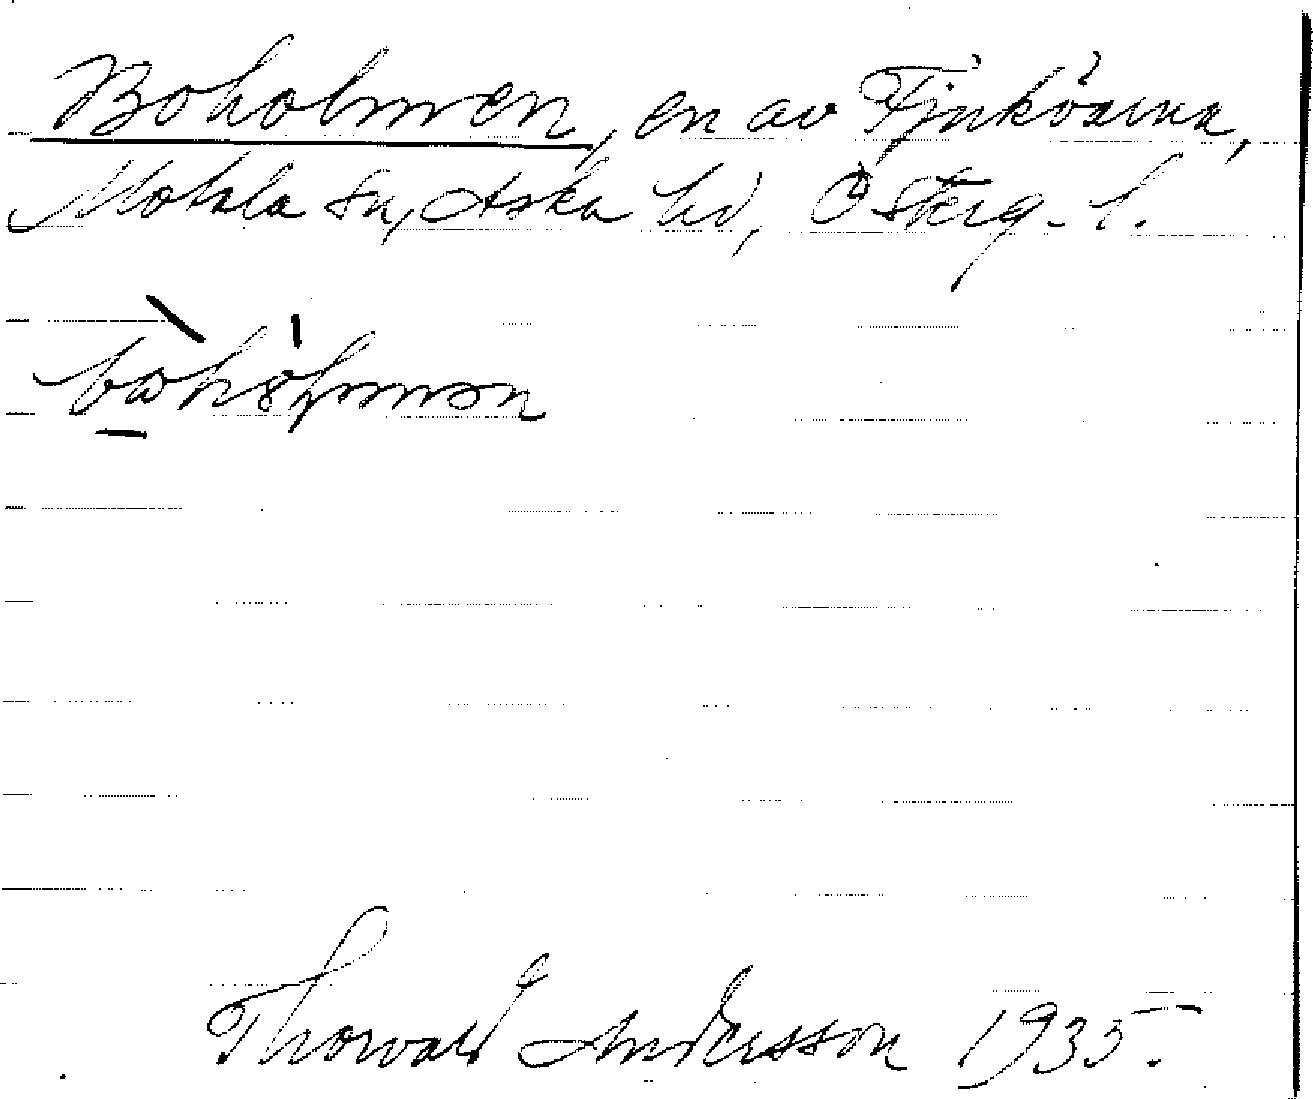 Boholmen, en av Fjukõarna,
Motala sn, Aska hd, Österg. l.
Thorvald Andersson 1935.